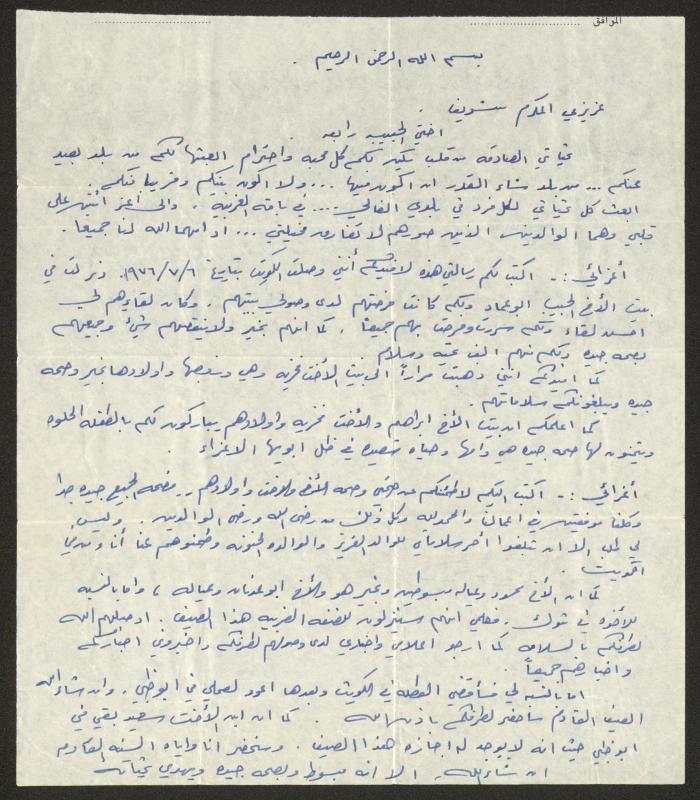 الموافق
بسم الله الرحمن الرحيم .
عزيزي المكرم شريف .
اختي الحبيبه رابعه
تحياتي الصادقه من قلب يكن لكم كل محبه واحترام ابعثها لكم من بلد بعيد
عنكم ... من بلد شاء القدر ان اكون فيها ... ولا اكون بينكم وقريبا منكم .
ابعث كل تحياتي لكل فرد في بلدي الغالي .... في باقه الغربيه . والى اعز اثنين على
قلبي وهما الوالدين الذين صورهم لا تفارق مخيلتي ... ادامهما الله لنا جميعا .
أعزائي :- اكتب لكم رسالتي هذه لافيدكم أنني وصلت الكويت بتاريخ ١٩٧٦/٧/٦ ونزلت في
بيت الأخ الحبيب ابو عماد وكم كانت فرحتهم لدى وصولي بيتهم . وكان لقاءهم لي
احسن لقاء وكم سررت وفرحت بهم جميعا . كما انهم بخير ولا ينقصهم شيئ وجميعهم
بصحه جيده ولكم منهم الف تحيه وسلام
كما افيدكم انني ذهبت مرارا الى بيت الأخت فخريه وهي وزوجها واولادها بخير وصحه
جيده ويبلغونكم سلاماتهم .
كما اعلمكم ان بيت الأخ ابراهيم والأخت فخريه واولادهم يباركون لكم بالطفله الحلوه
ويتمنون لها صحه جيده هي وامها وحياه سعيده في ظل ابويها الاعزاء .
أعزائي :- اكتب اليكم لاطمئنكم عن صحتي وصحه الأخ والاخت واولادهم .. فصحه الجميع جيده جدا
وكلنا موفقين في اعمالنا والحمد لله وكل ذلك من رضى الله ورضى الوالدين . وليس
لي طلب الا ان تبلغوا أحر سلاماتي للوالد العزيز والوالده الحنونه وطمنوهم عنا أنا و
الكويت .
كما ان الأخ محمود وعياله مبسوطين وبخير هو والأخ ابو عدنان وعياله ، واما بالنسبه
للأخوه في تبوك . فعلمي انهم سينزلون للضفه الغربيه هذا الصيف . اوصلهم الله
لطرفكم بالسلامه كما ارجو اعلامي واخباري لدى وصولهم لطرفكم واخبروني اخباركم
واخبارهم جميعا .
اما بالنسبه لي فسأقضي العطله في الكويت وبعدها اعود لعملي في ابو ظبي . وان شاء الله
الصيف القادم سأحضر لطرفكم باذن الله . كما ان ابن الأخت سعيد بقي في
ابو ظبي حيث انه لا يوجد له اجازه هذا الصيف . وسنحضر انا واياه السنه القادمه
ان شاء الله . الا انه مبسوط وبصحه جيده ويهدي تحياته